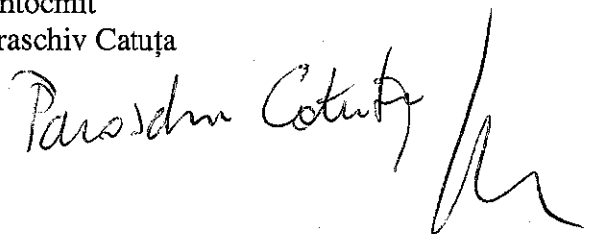 ntocmit
raschiv Catuța
Paraschiv Catuța